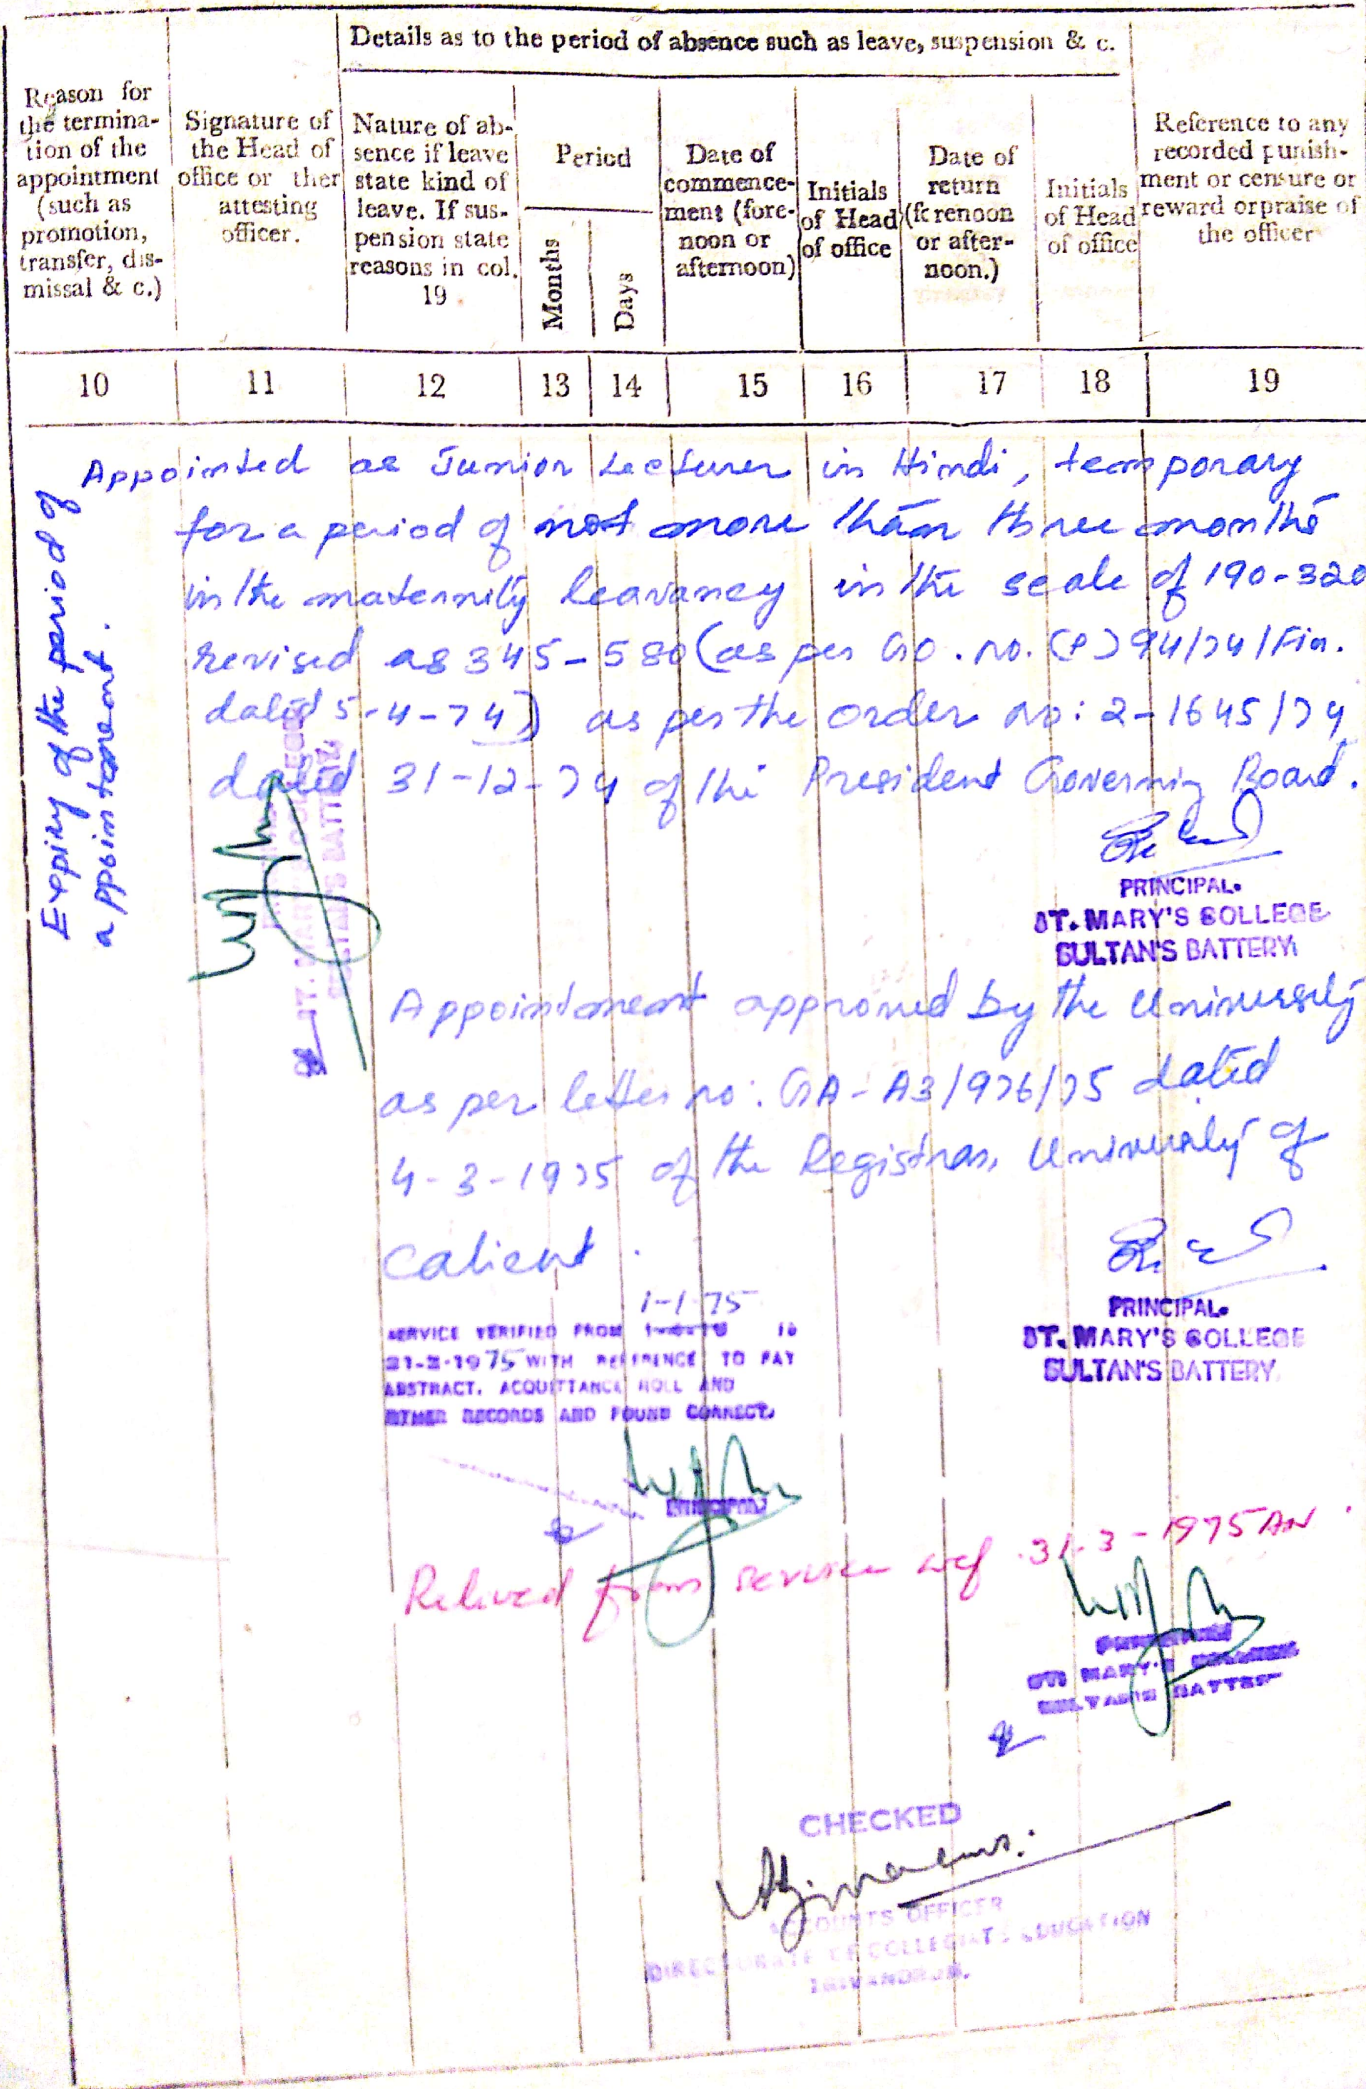 Details as to the period of absence such as leave, suspension & c.
Reason for
the termina-
tion of the
appointment
(such as
promotion,
transfer, dis-
missal & c.)
Signature of
the Head of
office or ther
attesting
officer.
Nature of ab-
sence if leave
state kind of
leave. If sus-
pension state
reasons in col.
19
Period
Months
Days
Date of
commence-
ment (fore-
noon or
afternoon)
Initials
of Head
of office
Date of
return
(forenoon
or after-
noon.)
Initials
of Head
of office
Reference to any
recorded punish-
ment or censure or
reward orpraise of
the officer
10 11 12 13 14 15 16 17 18 19
Expiry of the period of
appointment.
Appointed as Junior Lecturer in Hindi, temporary
for a period of not more than three months
in the maternity leavancy in the scale of 190-320
revised as 345-580 (as per GO. no. (P) 94/74/Fin.
dated 5-4-74) as per the order no: 2-1645/74
dated 31-12-74 of the President Governing Board.
PRINCIPAL.
ST. MARY'S COLLEGE
SULTAN'S BATTERY
Appointment approved by the University
as per letter no: GA-A3/976/75 dated
4-3-1975 of the Registrar, University of
Calicut.
1-1-75
SERVICE VERIFIED FROM
31-3-1975 WITH REFERENCE TO PAY
ABSTRACT, ACQUITTANCE ROLL AND
OTHER RECORDS AND FOUND CORRECT.
PRINCIPAL
PRINCIPAL.
ST. MARY'S COLLEGE
SULTAN'S BATTERY
Relived from service wef 31-3-1975 AN
PRINCIPAL
ST. MARY'S COLLEGE
SULTAN'S BATTERY
CHECKED
ACCOUNTS OFFICER
DIRECTORATE OF COLLEGIATE EDUCATION
TRIVANDRUM.